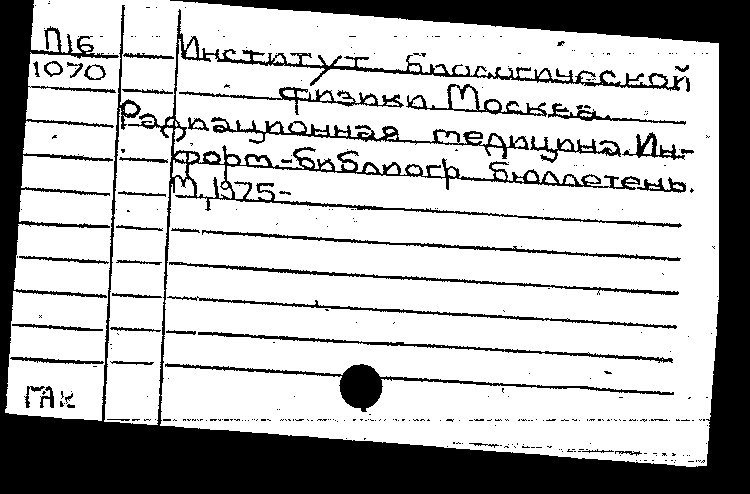 П16
1070
Институт биологической
физики. Москва.
Радиационная медицина. Ин-
форм.-библиогр. бюллетень.
М., 1975-
ГАК